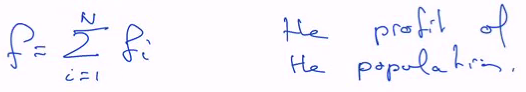 f = \sum_{i=1}^{N} f_i
the profit of
the population.